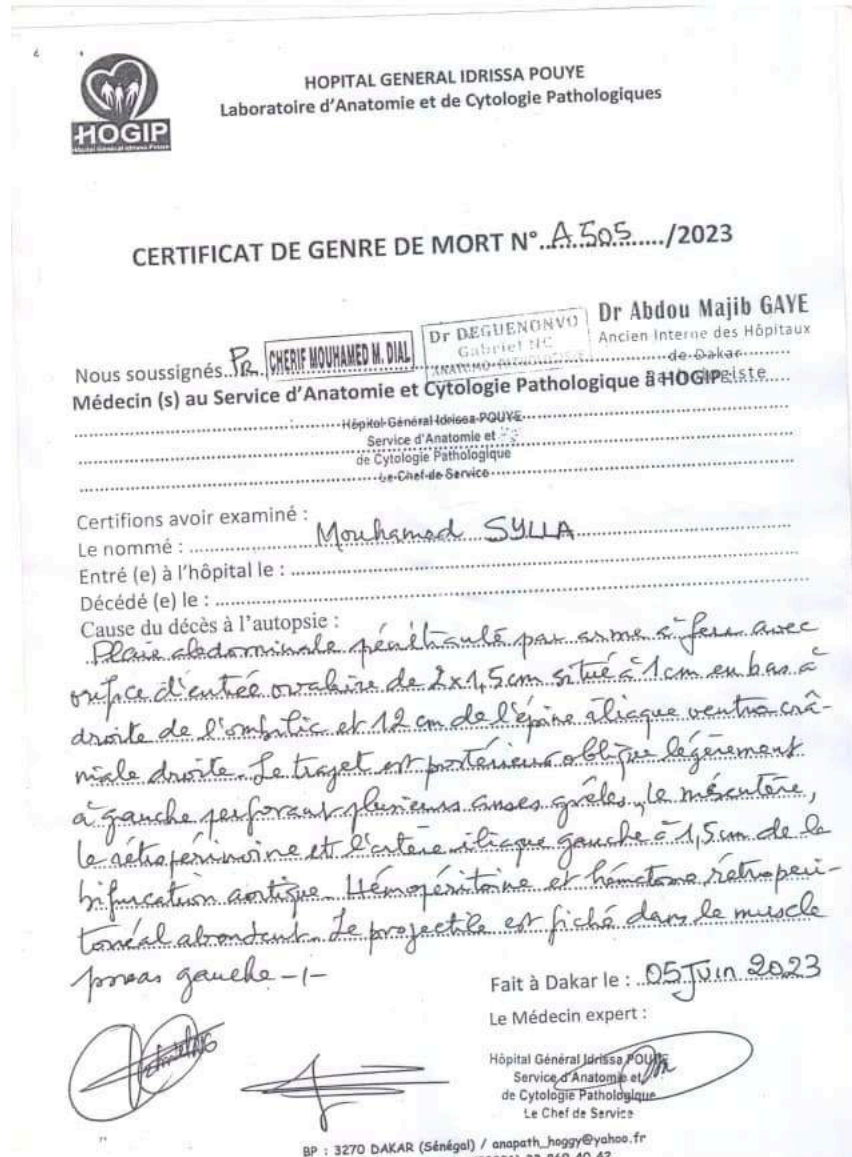 HOPITAL GENERAL IDRISSA POUYE
Laboratoire d'Anatomie et de Cytologie Pathologiques
HOGIP
Hôpital Général Idrissa Pouye
CERTIFICAT DE GENRE DE MORT N° A505 /2023
Nous soussignés Pr CHERIF MOUHAMED M. DIAL
Dr DEGUENONVO
Gabriel NC
Dr Abdou Majib GAYE
Ancien Interne des Hôpitaux
de Dakar
Médecin (s) au Service d'Anatomie et Cytologie Pathologique à HOGIP
Hôpital Général Idrissa POUYE
Service d'Anatomie et
de Cytologie Pathologique
Le Chef de Service
Certifions avoir examiné :
Le nommé : Mouhamed SYLLA
Entré (e) à l'hôpital le :
Décédé (e) le :
Cause du décès à l'autopsie :
Plaie abdominale pénétrante par arme à feu avec
orifice d'entrée ovalaire de 2x1,5cm situé à 1cm en bas à
droite de l'ombilic et 12 cm de l'épine iliaque ventro crâ-
niale droite. Le trajet est postérieur oblique légèrement
à gauche perforant plusieurs anses grêles, le mésentère,
le et l'artère iliaque gauche à 1,5cm de la
bifurcation aortique. Hémopéritoine et hématome rétropéri-
tonéal abondant. Le projectile est fiché dans le muscle
psoas gauche -/-
Fait à Dakar le : 05 Juin 2023
Le Médecin expert :
Hôpital Général Idrissa POUYE
Service d'Anatomie et
de Cytologie Pathologique
Le Chef de Service
BP : 3270 DAKAR (Sénégal) / anapath_hoggy@yahoo.fr